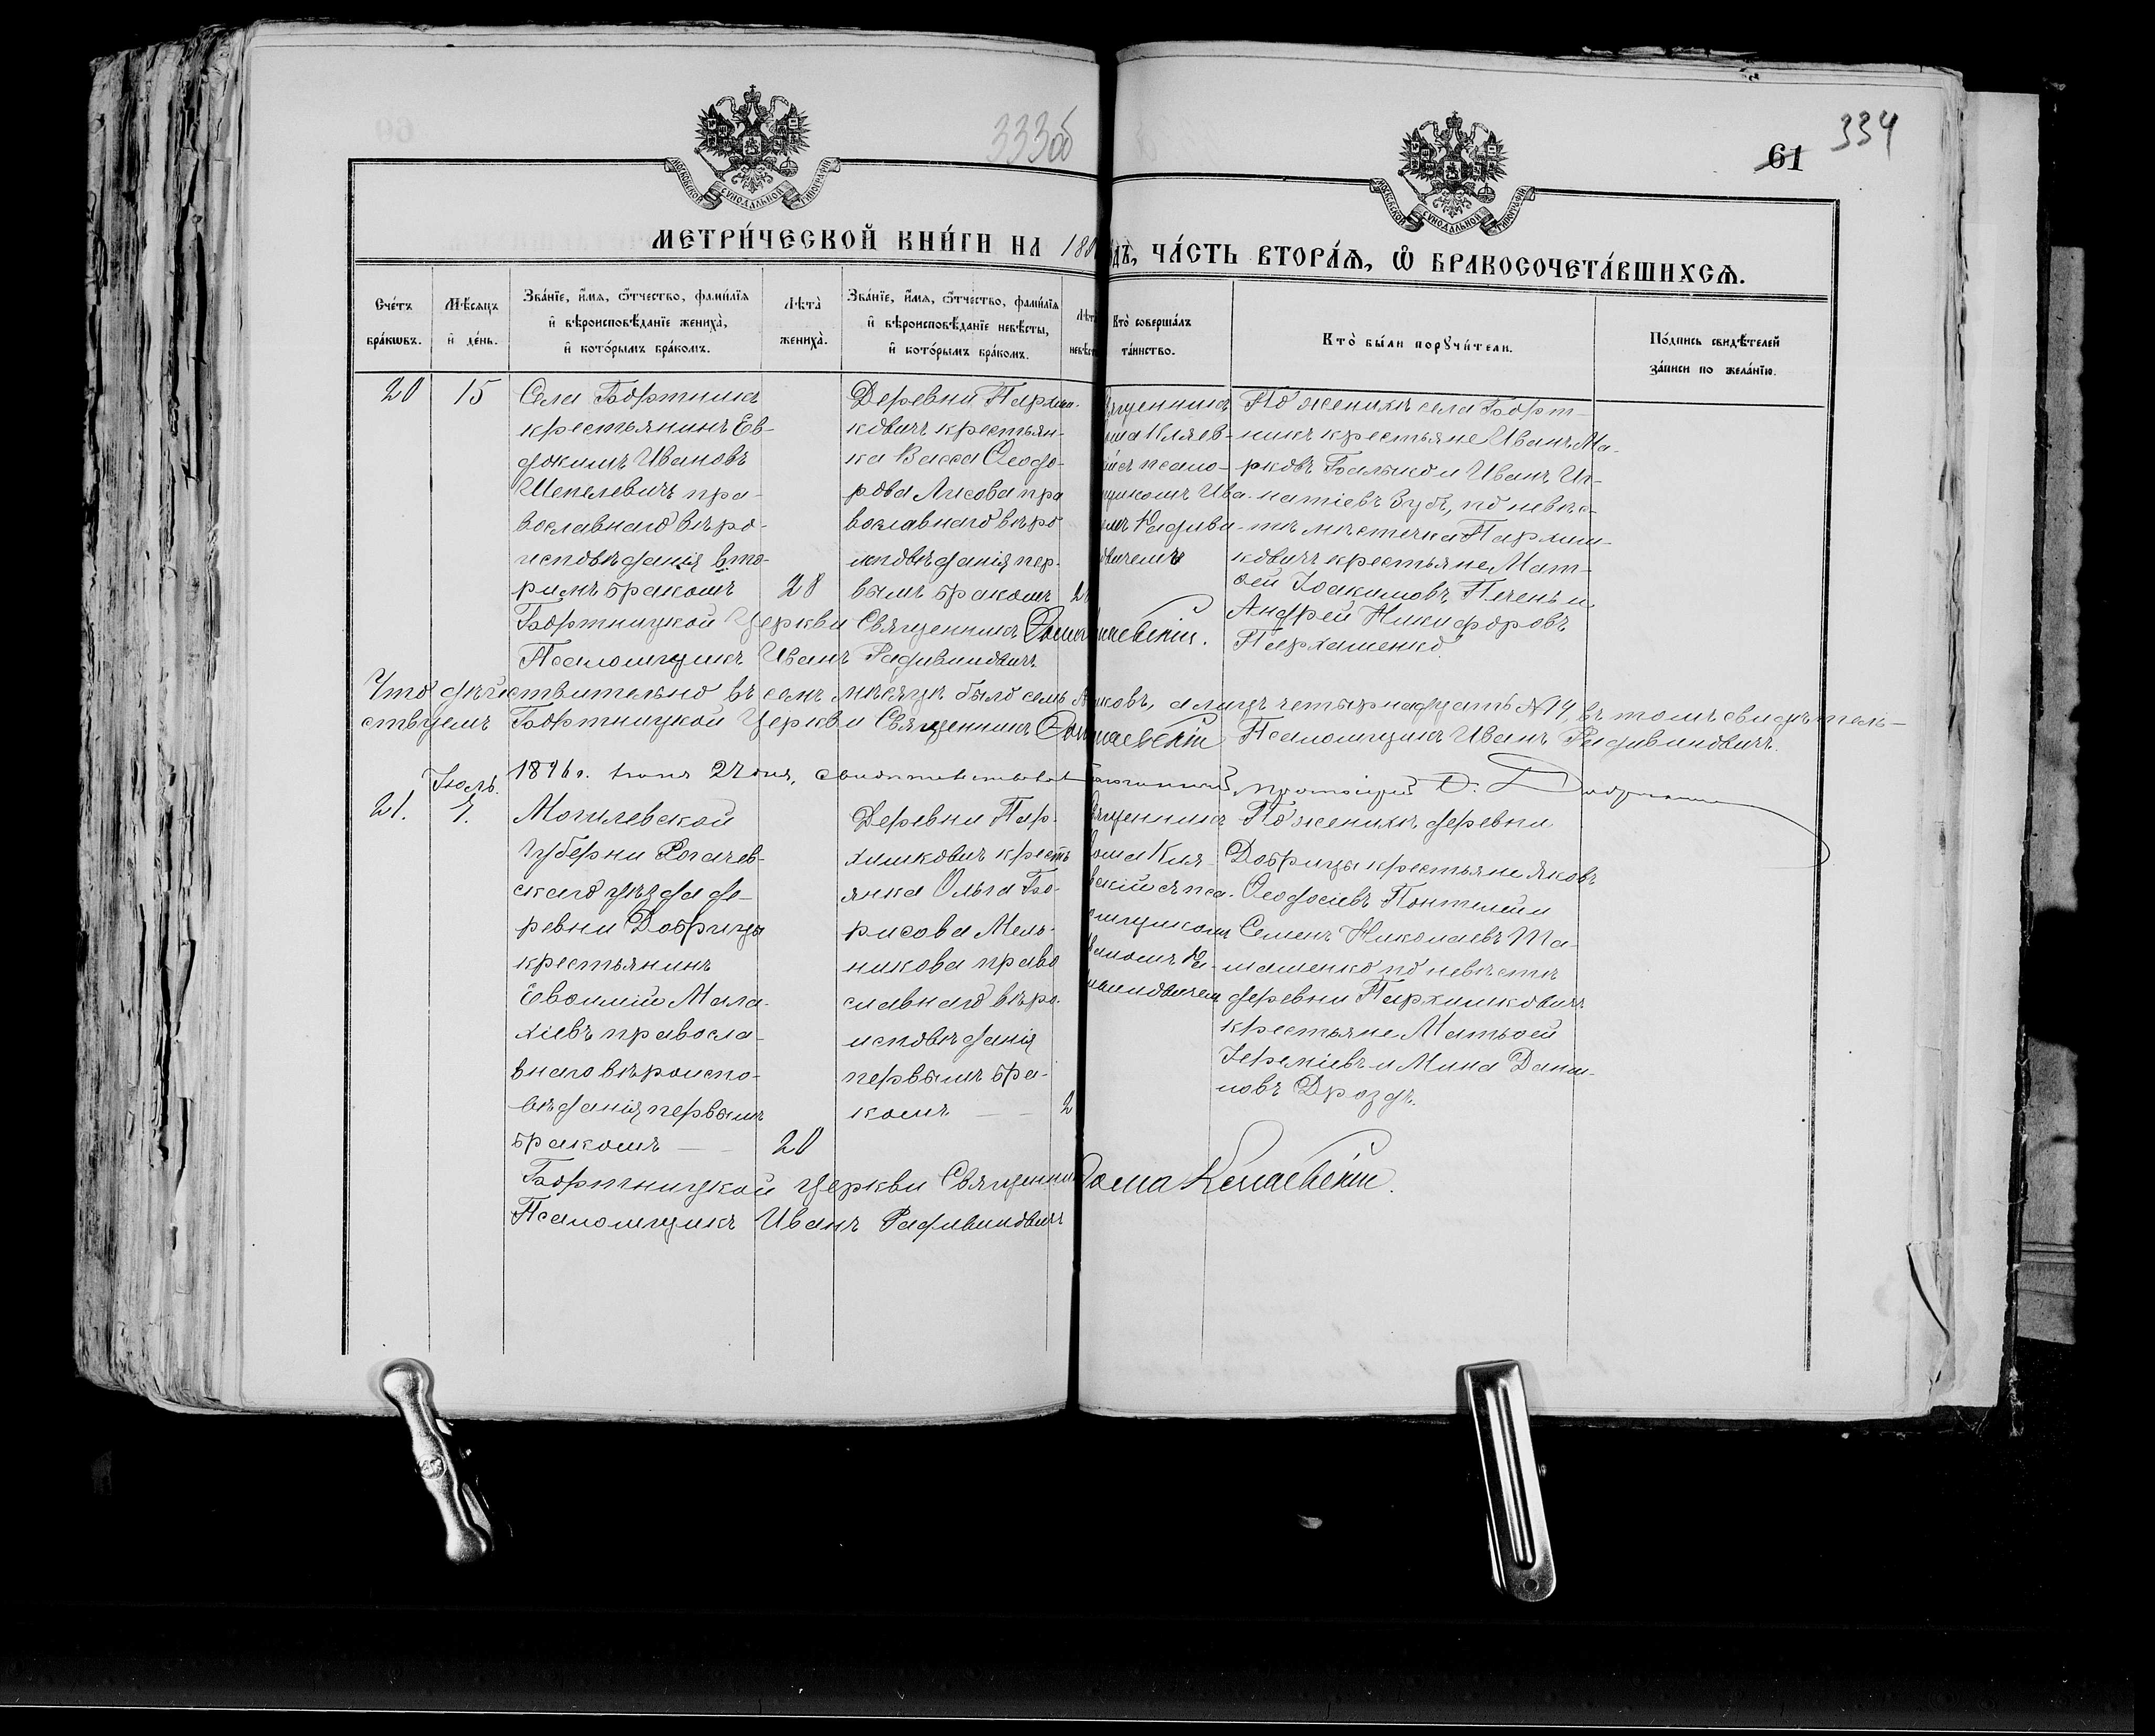 333об
334
61
МОСКОВСКОЙ СѴНОДАЛЬНОЙ ТИПОГРАФІИ
МОСКОВСКОЙ СѴНОДАЛЬНОЙ ТИПОГРАФІИ
МЕТРИ́ЧЕСКОЙ КНИ́ГИ НА 18 ДЪ, ЧА́СТЬ ВТОРА́Ѧ, Ѽ БРАКОСОЧЕТА́ВШИХСѦ.
Сче́тъ
бра́кѡвъ.
Мѣ́сѧцъ
и҆ де́нь.
Зва́нїе, и҆́мѧ, ѻ҆́тчество, фами́лїѧ
и҆ вѣроисповѣ́данїе жениха̀,
и҆ кото́рымъ бра́комъ.
Лѣ́та
жениха̀.
Зва́нїе, и҆́мѧ, ѻ҆́тчество, фами́лїѧ
и҆ вѣроисповѣ́данїе невѣ́сты,
и҆ кото́рымъ бра́комъ.
Лѣт
невѣст
Кто̀ соверша́лъ
та́инство.
Кто̀ бы́ли порꙋчи́тели.
По́дпись свидѣ́телей
за́писи по жела́нїю.
20
15
Села Бортникъ
крестьянинъ Ев-
докимъ Ивановъ
Шепелевичъ пра-
вославнаго вѣро-
исповѣданія вто-
римъ бракомъ
28
Деревни Пархим-
ковичъ крестьян-
ка Васса Ѳеодо-
рова Лисова пра
вославнаго вѣро
исповѣданія пер-
вымъ бракомъ
2
вященникъ
ома Кляев-
ій съ псало-
мщикомъ Ива-
омъ Радиви-
овичемъ
По женихѣ села Борт-
никъ крестьяне Иванъ Ма-
рковъ Балыко и Иванъ Иг-
натіевъ Зубъ, по невѣс-
тѣ мѣстечка Пархим-
ковичъ крестьяне Мат-
ѳей Іоакимовъ Плень и
Андрей Никифоровъ
Пархаменко
Бортницкой Церкви Священникъ Ѳома маевскій.
Псаломщикъ Иванъ Радивиновичъ
Что дѣйствительно въ семъ мѣсяцѣ было семь ковъ, а лицъ четырнадцать №14, въ томъ свидѣтель-
ствуемъ Бортницкой Церкви Священникъ Ѳом маевскій Псаломщикъ Иванъ Радивиновичъ.
1896 г. іюня 27 дня, свидѣтельствовалъ благочинный, протоіерей
Іюль.
21.
7.
Могилевской
Губерни Рогачев-
скаго уѣзда де-
ревни Добрицы
крестьянинъ
Евѳимій Мала-
хіевъ правосла-
внаго вѣроиспо-
вѣданія первымъ
бракомъ — —
20
Деревни Пар-
химковичъ кресть
янка Ольга Бо-
рисова Мель-
никова право
славнаго вѣро-
исповѣданія
первымъ бра-
комъ — —
2
вященникъ
ома Кля
вскій съ пса-
омщикомъ
ваномъ Ра-
ивиновичемъ
По женихѣ деревни
Добрицы крестьяне Яковъ
Ѳеодосіевъ Понтелѣй и
Семенъ Николаевъ Та-
машенко по невѣстѣ
деревни Пархимковичъ
крестьяне Матѳей
Іереміевъ и Мина Дани-
ловъ Дроздъ.
Бортницкой Церкви Священник Ѳома Клмаевскій.
Псаломщикъ Иванъ Радивиновичъ